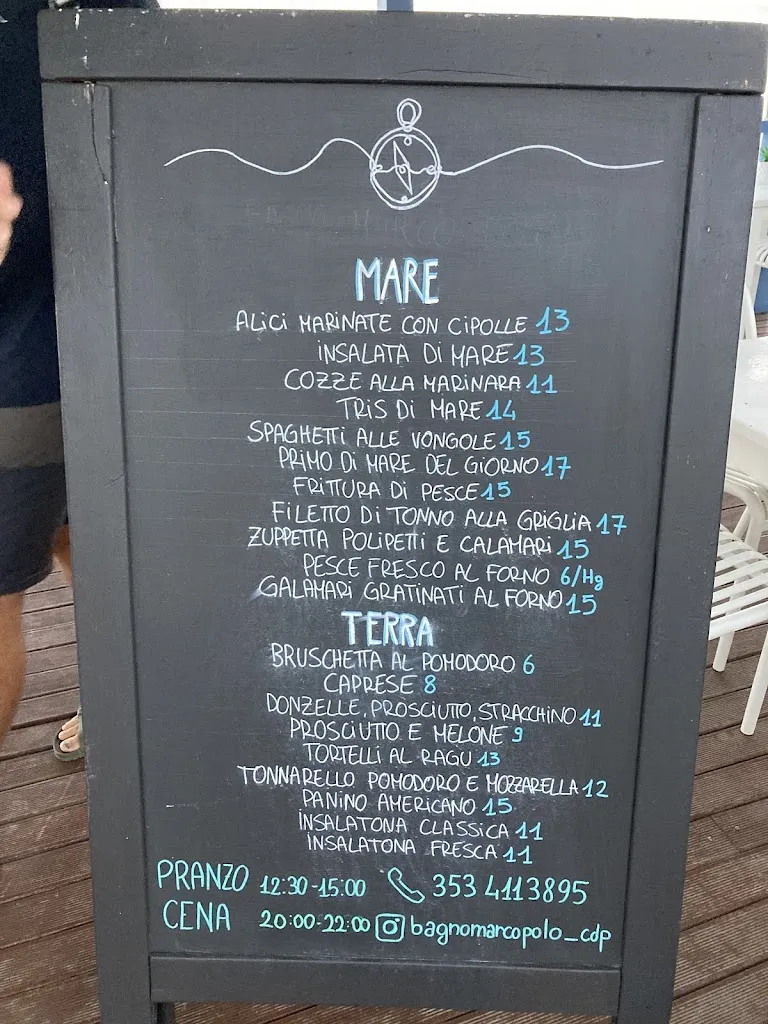 MARE
ALICI MARINATE CON CIPOLLE 13
INSALATA DI MARE 13
COZZE ALLA MARINARA 11
TRIS DI MARE 14
SPAGHETTI ALLE VONGOLE 15
PRIMO DI MARE DEL GIORNO 17
FRITTURA DI PESCE 15
FILETTO DI TONNO ALLA GRIGLIA 17
ZUPPETTA POLIPETTI E CALAMARI 15
PESCE FRESCO AL FORNO 6/Hg
CALAMARI GRATINATI AL FORNO 15
TERRA
BRUSCHETTA AL POMODORO 6
CAPRESE 8
DONZELLE, PROSCIUTTO, STRACCHINO 11
PROSCIUTTO E MELONE 9
TORTELLI AL RAGU 13
TONNARELLO POMODORO E MOZZARELLA 12
PANINO AMERICANO 15
INSALATONA CLASSICA 11
INSALATONA FRESCA 11
PRANZO 12:30-15:00 353 4113895
CENA 20:00-22:00 bagnomarcopolo_cdp